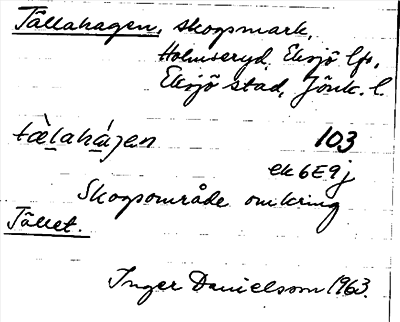 Tällahagen, skogsmark,
Holmseryd Eksjö lfs,
Eksjö stad, Jönk. l.
tæ̀laháǥen 103
ek 6E9j
Skogsområde omkring
Tället.
Inger Danielsson 1963.